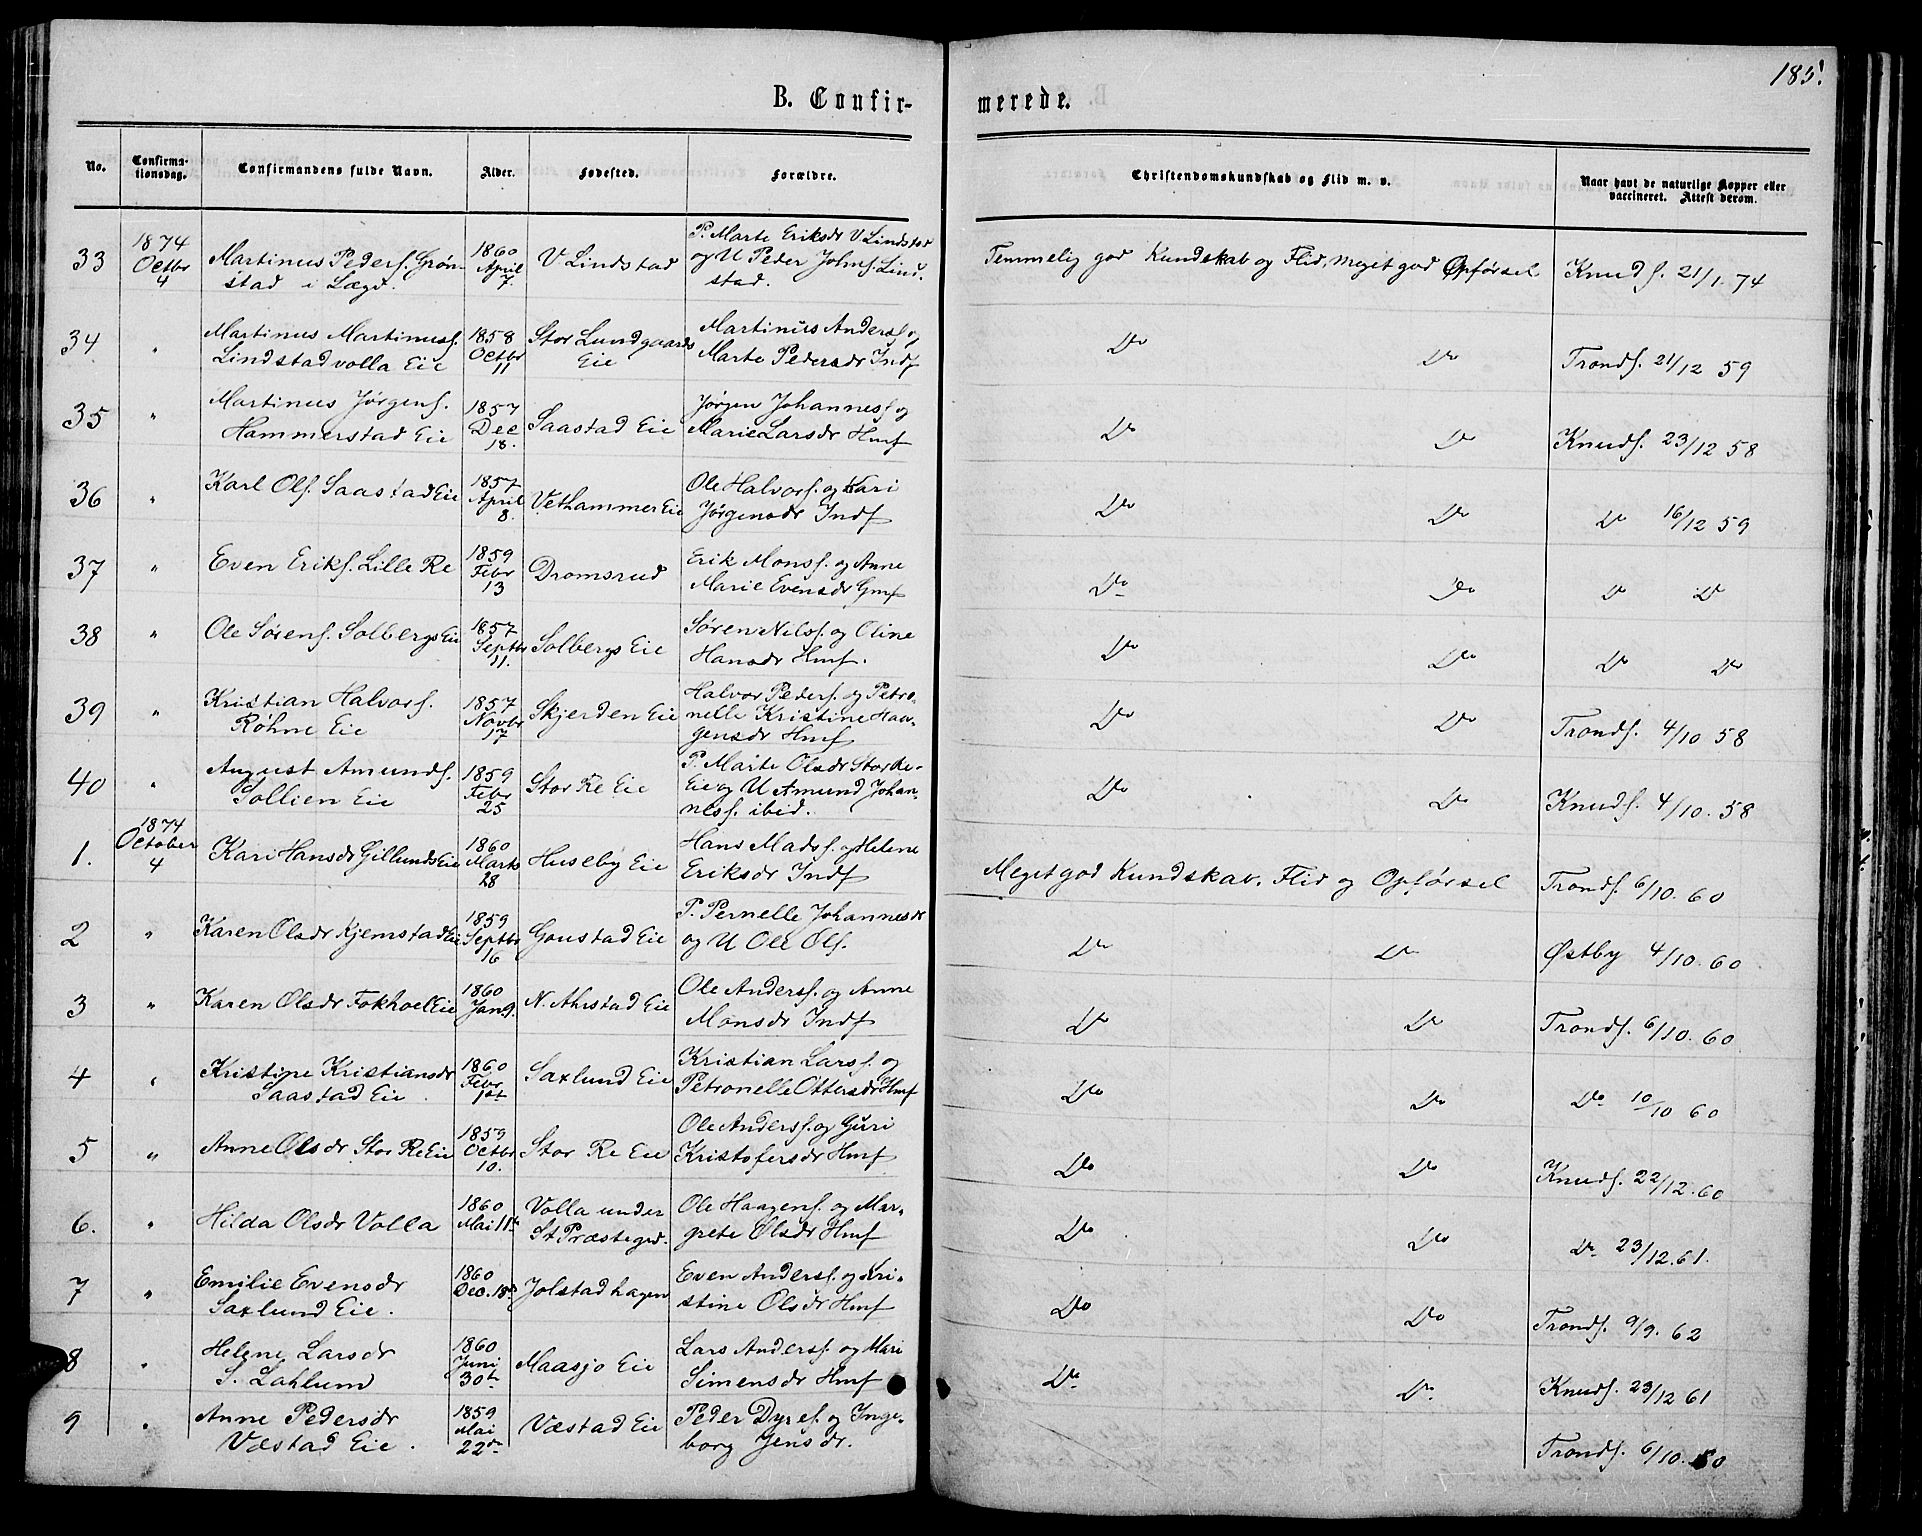 185.
B. Confir-
merede.
No.
Confirma-
tionsdag.
Confirmandens fulde Navn.
Alder.
Fødested.
Forældre.
Christendomskundskab og Flid m. v.
Naar havt de naturlige Kopper eller
vaccineret. Attest derom.
33
1874
Octbr
4
Martinus Peders. Grøn-
stad i Lægd.
1860
April
7.
V Lindstad
P. Marte Eriksdr V Lindstad
og U Peder Johns. Lind-
stad.
Temmelig god Kundskab og Flid, meget god Opførsel
Knuds. 21/1. 74
34
"
Martinus Martinuss.
Lindstadvolla Eie
1858
Octbr
11
Stor Lundgaards
Eie
Martinus Anders. og
Marte Pedersdr Indf
Do Do
Tronds. 21/12 59
35
"
Martinus Jørgens.
Hammerstad Eie
1857
Dec
18.
Saastad Eie
Jørgen Johanness. og
Marie Larsdr Hmf
Do Do
Knuds. 23/12 58
36
"
Karl Ols. Saastad Eie
1857
April
8.
Vethammer Eie
Ole Halvors. og Kari
Jørgensdr Indf
Do Do
Do 16/12 59
37
"
Even Eriks. Lille Re
1859
Febr
13
Dromsrud
Erik Monss. og Anne
Marie Evensdr Gmf
Do Do
Do Do
38
"
Ole Sørens. Solbergs Eie
1857
Septbr
11.
Solbergs Eie
Søren Nilss. og Oline
Hansdr Hmf.
Do Do
Do Do
39
"
Kristian Halvors.
Røhne Eie
1857
Novbr
17
Skjerden Eie
Halvor Peders. og Petro-
nelle Kristine Haa-
gensdr Hmf
Do Do
Tronds. 4/10 58
40
"
August Amunds.
Sollien Eie
1859
Febr
25
Stor Re Eie
P. Marte Olsdr Stor Re-
Eie og U Amund Johan-
ness. ibid.
Do Do
Knuds. 4/10. 58
1.
1874
October
4
Kari Hansdr Gillunds Eie
1860
Marts
28
Huseby Eie
Hans Madss. og Helene
Eriksdr Indf
Meget god Kundskab, Flid og Opførsel
Tronds. 6/10. 60
2
"
Karen Olsdr Kjemstad Eie
1859
Septbr
16
Goustad Eie
P. Pernelle Johannesdr
og U Ole Ols.
Do Do
Østby 4/10. 60
3
"
Karen Olsdr Fokhoel Eie
1860
Jan 9.
N. Ahrstad Eie
Ole Anderss. og Anne
Monsdr Indf
Do Do
Tronds. 6/10. 60
4
"
Kristine Kristiansdr
Saastad Eie.
1860
Febr
1st
Saxlund Eie
Kristian Larss. og
Petronelle Ottersdr Hmf
Do Do
Do 10/10 60
5
"
Anne Olsdr Stor Re Eie
1859
Octbr
10.
Stor Re Eie
Ole Anderss. og Guri
Kristofersdr Hmf
Do Do
Knuds. 22/12. 60
6.
"
Hilda Olsdr Volla
1860
Mai 11te
Volla under
St Præstegrd.
Ole Haagens. og Mar-
grete Olsdr Hmf
Do Do
Do 23/12. 61.
7
"
Emilie Evensdr
Saxlund Eie.
1860
Dec. 18de
Jolstadhagen
Even Anderss. og Kri-
stine Olsdr Hmf
Do Do
Tronds. 9/9. 62
8
"
Helene Larsdr
S. Lahlum
1860
Juni
30te
Maasjo Eie
Lars Anderss. og Mari
Simensdr Hmf
Do Do
Knuds. 23/12 61
9
"
Anne Pedersdr
Væstad Eie.
1859
Mai
22de
Væstad Eie
Peder Dyres. og Inge-
borg Jensdr.
Tronds. 6/10. 60